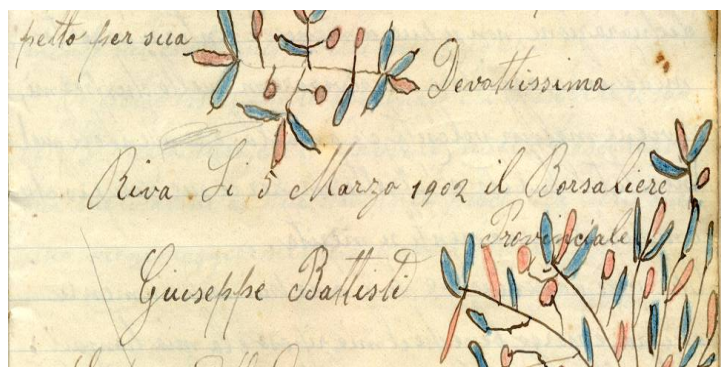 petto per sua
Devottissima
Riva Li 5 Marzo 1902 il Borsaliere
Provinciale
Giuseppe Battisti